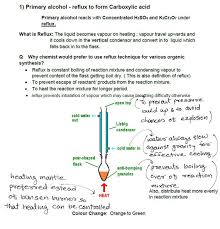 1) Primary alcohol - reflux to form Carboxylic acid
Primary alcohol reacts with Concentrated H₂SO₄ and K₂Cr₂O₇ under
reflux.
What is Reflux: The liquid becomes vapour on heating ; vapour travel upwards and
it cools down in the vertical condenser and convert in to liquid which
falls back in to the flask.
Q: Why chemist would prefer to use reflux technique for various organic
synthesis?
• Reflux is constant boiling of reaction mixture and condensing vapour to
prevent content of the flask getting boil dry. ( This is also definition of reflux)
• To prevent escape of reactant/ products from the reaction mixture.
• To heat the reaction mixture for longer time.
• reflux prevents inhalation of vapour which may cause breathing difficulty otherwise
open top
To prevent pressure
build up & to avoid
chances of explosion
cold water
out
Liebig
condenser
water always slow
against gravity for
effective cooling
cold water
in
pear-shaped
flask
anti-bumping
granules
prevents boiling
over of reaction
mixture.
Also, distribute heat more evenly
in reaction mixture
heating mantle
preferred instead
of bunsen burner so
that heating can be controlled
HEAT
Colour Change: Orange to Green